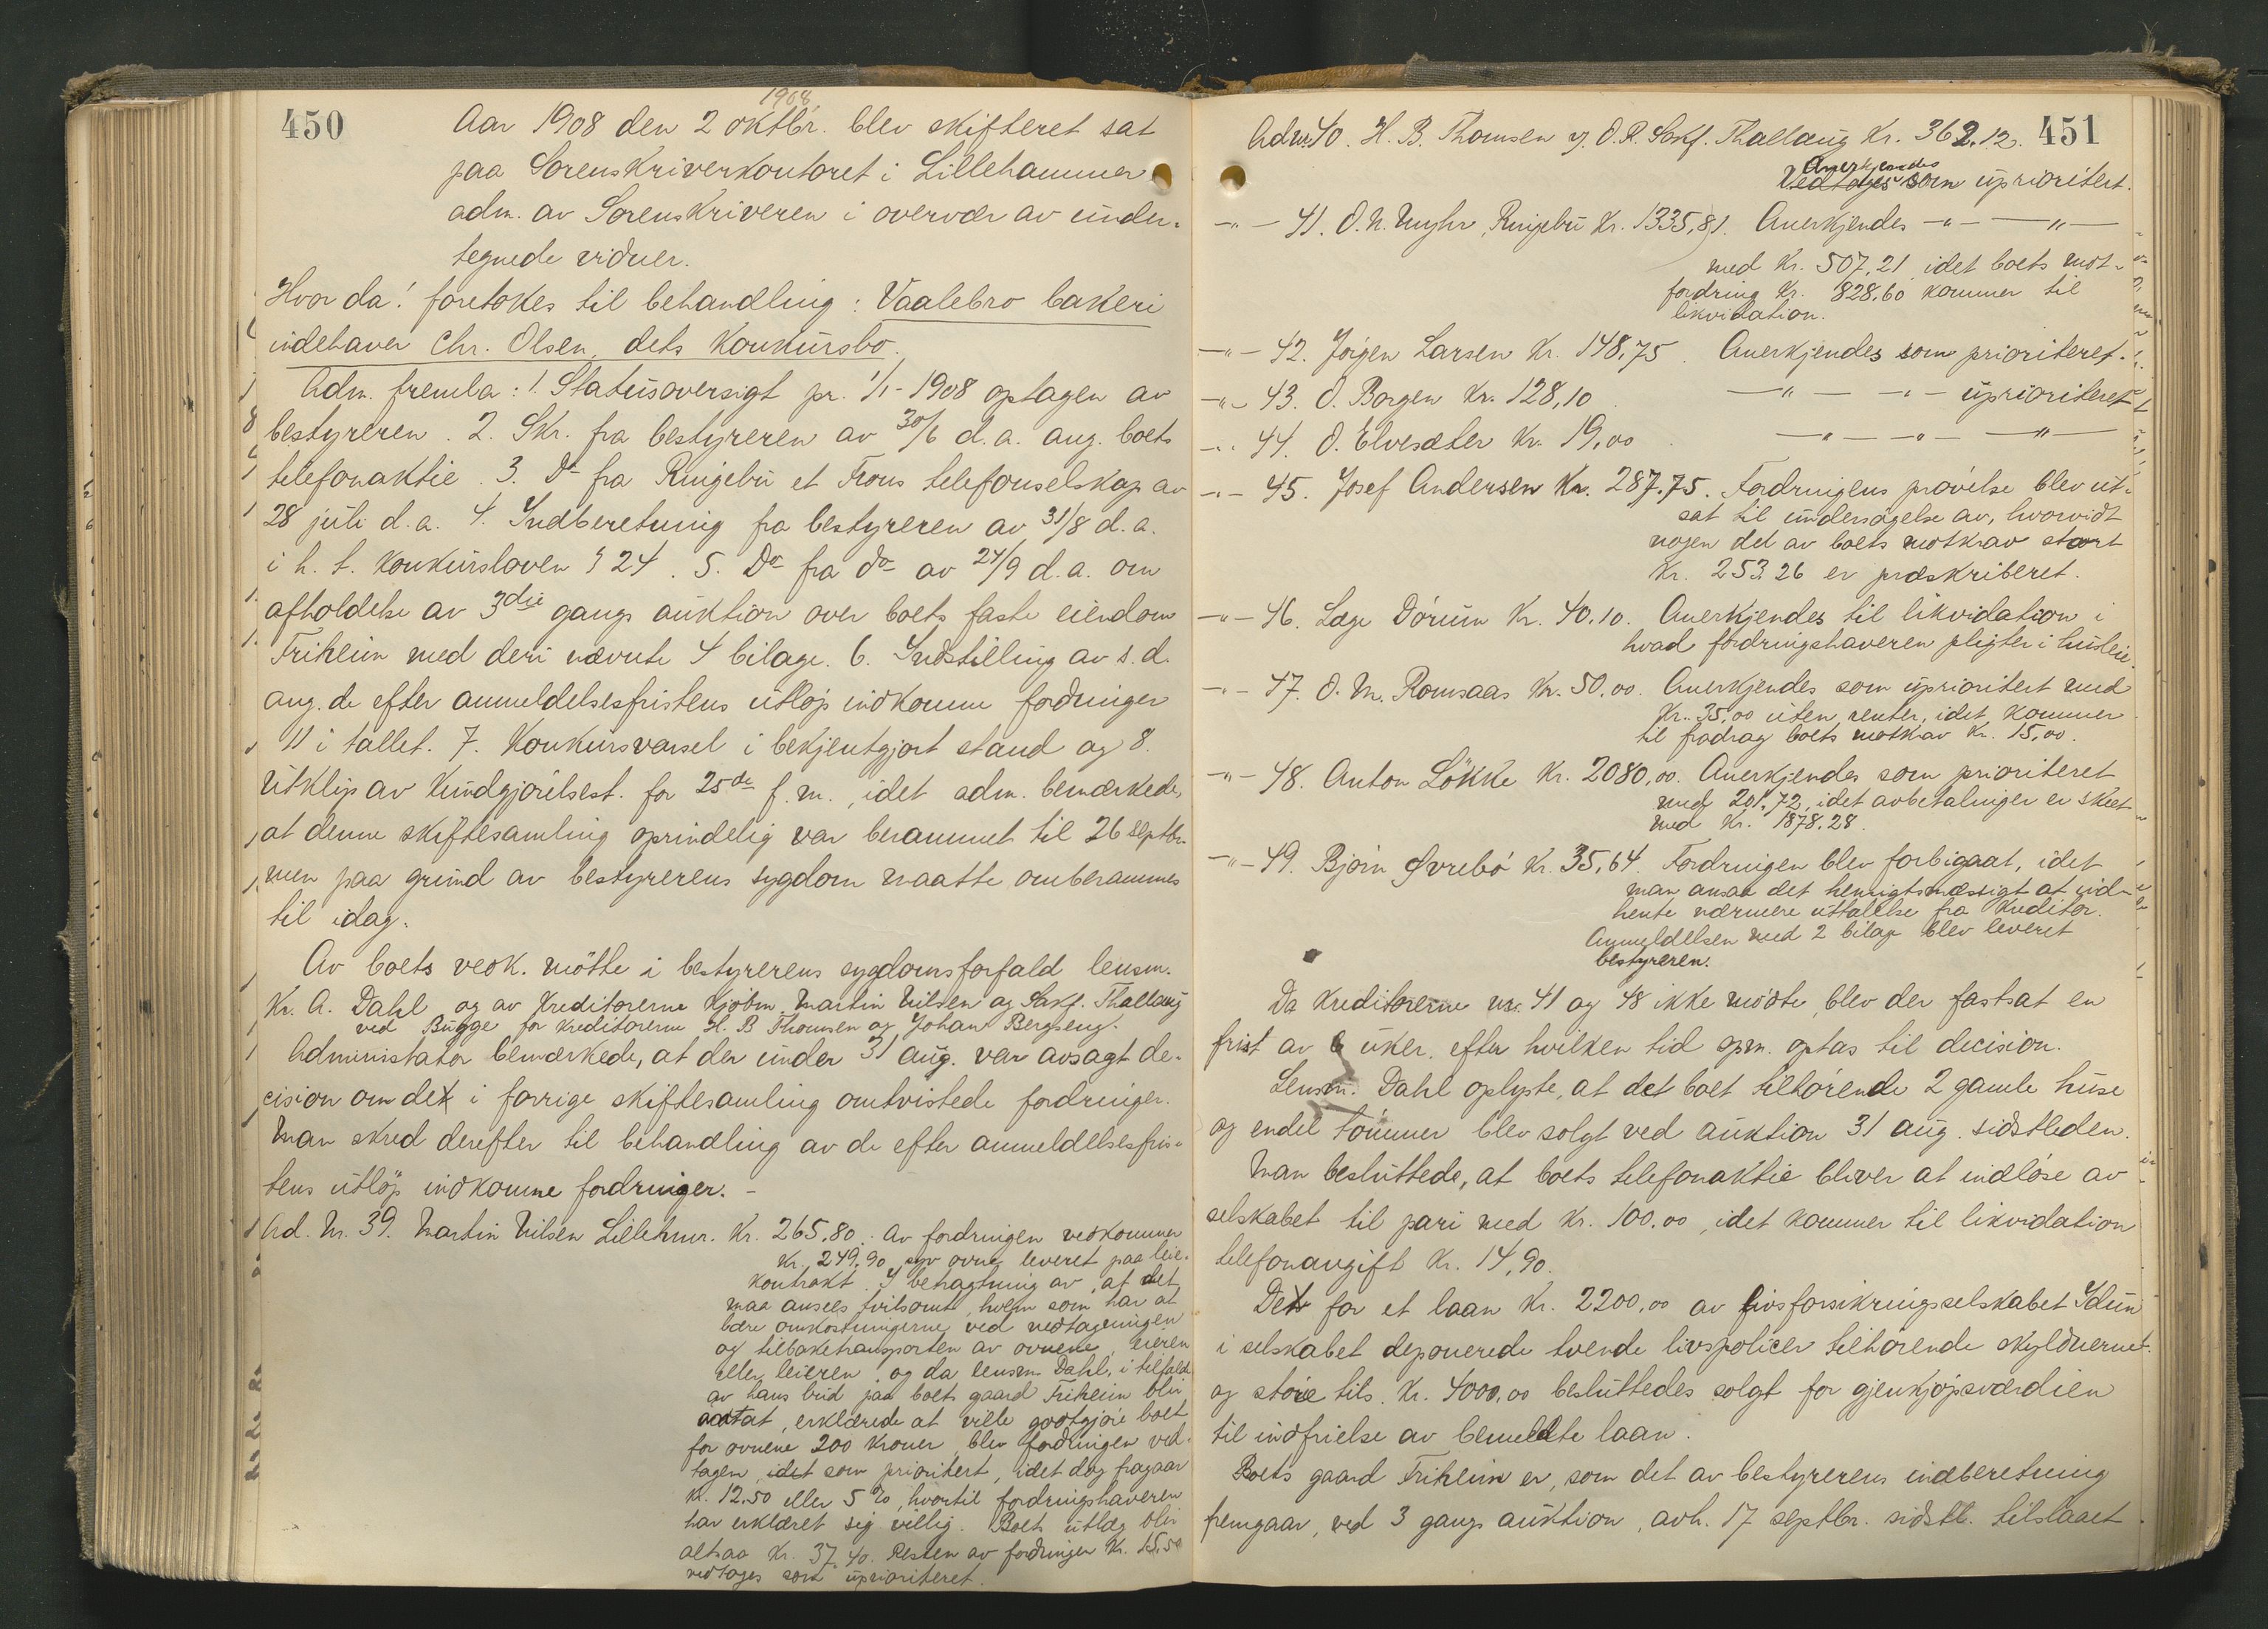 450
1908
Aar 1908 den 2 oktbr. blev skifteret sat
paa Sorenskriverkontoret i Lillehammer
adm. av Sorenskriveren i overvær av under-
tegnede vidner.
Hvor da! foretokes til behandling: Vaalebro bakeri
indehaver Chr. Olsen, dets konkursbo.
Adm. fremla: 1. Statusoversigt pr. 1/1-1908 optagen av
bestyreren. 2. Skr. fra bestyreren av 30/6 d.a. ang. boets
telefonaktie. 3. Do fra Ringebu et Frons telefonselskap av
28 juli d.a. 4. Indberetning fra bestyreren av 31/8 d.a.
i h. t. konkursloven § 24. 5. Do fra do av 24/9 d.a. om
afholdelse av 3die gangs auktion over boets faste eiendom
Friheim med deri nævnte 4 bilage. 6. Indstilling av s.d.
ang. de efter anmeldelsesfristens utløp indkomne fordringer
11 i tallet. 7. Konkursvarsel i bekjentgjort stand og 8.
Utklip av Kundgjørelsest. for 25de f.m., idet adm. bemærkede,
at denne skiftesamling oprindelig var berammet til 26 septbr.
men paa grund av bestyrerens sygdom maatte omberammes
til idag.
Av boets vedk. møtte i bestyrerens sygdomsforfald lensm.
Kr. A. Dahl og av kreditorerne kjøbm. Martin Nilsen og Sakf. Thallaug
ved Bugge for kreditorerne H. B Thomsen og Johan Bergseng.
Administrator bemærkede, at der under 31 aug. var avsagt de-
cision om de i forrige skiftesamling omtvistede fordringer.
Man skred derefter til behandling av de efter anmeldelsesfris-
tens utløp indkomne fordringer. -
Ad. Nr. 39. Martin Nilsen Lillehmr. Kr. 265,80. Av fordringen vedkommer
Kr. 249.90 syv ovne leveret paa leie-
kontrakt. I betragtning av, at det
maa ansees tvilsomt, hvem som har at
bære omkostningerne ved nedtagningen
og tilbaketransporten av ovnene, eieren
eller leieren, og da lensm. Dahl, i tilfælde
av hans bud paa boets gaard Friheim blir
antat, erklærede at ville godtgjøre boet
for ovnene 200 kroner, blev fordringen ved-
tagen, idet som prioritert, idet dog fragaar
Kr. 12.50 eller 5 %, hvortil fordringshaveren
har erklæret sig villig. Boets utlæg blir
altsaa Kr. 37.40. Resten av fordringen Kr. 15.50
vedtages som uprioriteret.
451
Ad nr. 40. H. B. Thomsen v. O.R. Sakf. Thallaug Kr. 362.12.
Anerkjendes
Vedtages som uprioritert.
-"- 41. O. N. Myhr, Ringebu Kr. 1335,81. Anerkjendes -"- -"-
med Kr. 507,21 idet boets mot-
fordring Kr. 828.60 kommer til
likvidation.
-"- 42. Jørgen Larsen Kr. 148,75. Anerkjendes som prioriteret.
-"- 43. O. Borgen Kr. 128,10. -"- -"- uprioriteret
-"- 44. O. Elvesæter Kr. 19,00. -"- -"- -"-
-"- 45. Josef Andersen Kr. 287.75. Fordringens prøvelse blev ut-
sat til undersøgelse av, hvorvidt
nogen del av boets motkrav stort
Kr. 253.26 er præskriberet.
-"- 46. Læge Dørum Kr. 40.10. Anerkjendes til likvidation i
hvad fordringshaveren pligter i husleie.
-"- 47. O. M. Romsaas Kr. 50.00. Anerkjendes som uprioritert med
Kr. 35,00 uten renter, idet kommer
til fradrag boets motkrav Kr. 15,00.
-"- 48. Anton Løkke Kr. 2080,00. Anerkjendes som prioriteret
med 201,72, idet avbetalinger er skeet
med Kr. 1878.28.
-"- 49. Bjørn Øvrebø Kr. 35,64. Fordringen blev forbigaat, idet
man ansaa det hensigtsmæssigt at ind-
hente nærmere uttalelse fra kreditor.
Anmeldelsen med 2 bilage blev leveret
bestyreren.
Da kreditorerne nr. 41 og 48 ikke mødte, blev der fastsat en
frist av 6 uker, efter hvilken tid spm. optas til decision.
Lensm. Dahl oplyste, at det boet tilhørende 2 gamle huse
og endel tømmer blev solgt ved auktion 31 aug. sidstleden.
Man besluttede, at boets telefonaktie bliver at indløse av
selskabet til pari med Kr. 100.00, idet kommer til likvidation
telefonavgift Kr. 14,90.
De for et laan Kr. 2200,00 av livsforsikringsselskabet Idun
i selskabet deponerede tvende livspolicer tilhørende skyldneren
og store tils. Kr. 4000,00 besluttedes solgt for gjenkjøpsværdien
til indfrielse av bemeldte laan.
Boets gaard Friheim er, som det av bestyrerens indberetning
fremgaar, ved 3 gangs auktion, avh. 17 septbr. sidstl. tilslaaet